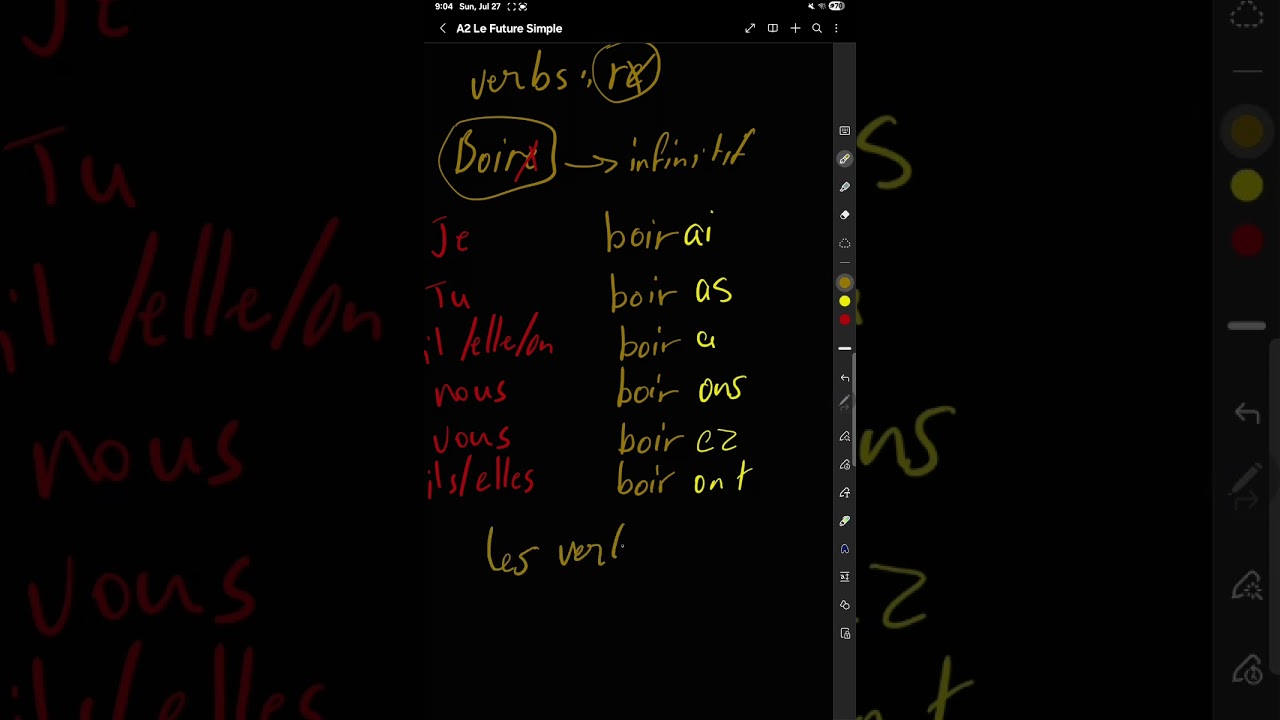 9:04 Sun, Jul 27 70
A2 Le Future Simple
verbs : re
Boire → infinitif
Je boir ai
Tu boir as
il /elle/on boir a
nous boir ons
vous boir ez
ils/elles boir ont
les verb